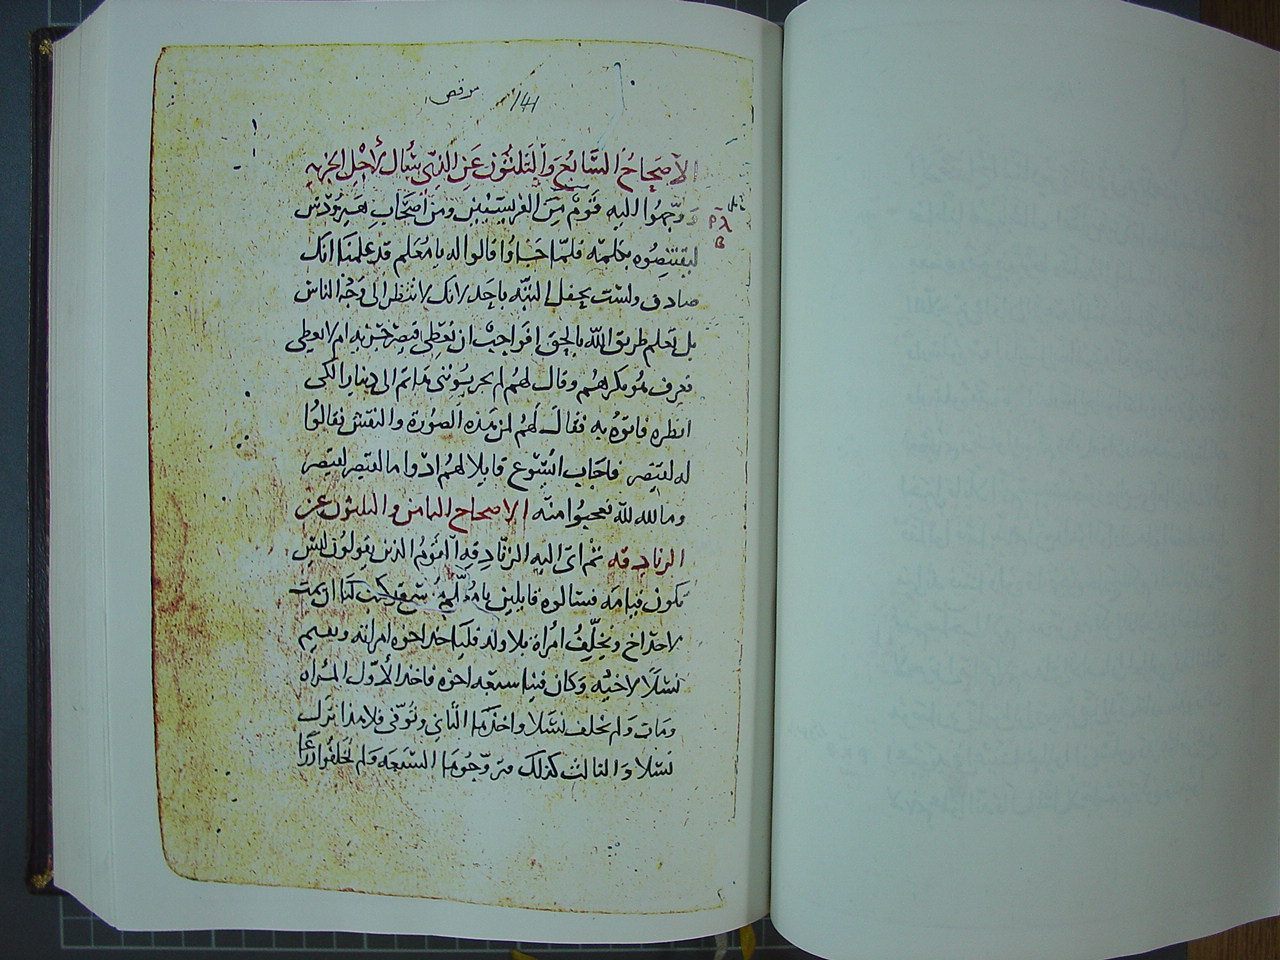 مرقص 141
الاصحاح السابع والثلثون عن الذين سال لاجل الجزيه
ووجهوا اليه قوم من الفريسيين ومن اصحاب هيرودس
ليقتنصوه بكلمه فلما جاوا قالوا له يا معلم قد علمنا انك
صادق ولست تحفل البته باحد لانك لا تنظر الى وجه الناس
بل تعلم طريق الله بالحق افواجب ان نعطى قيصر جزيه ام لا نعطى
فعرف هو مكرهم وقال لهم لم تجربوننى هاتم الى دينارا لكى
انظره فاتوه به فقال لهم لمن هذه الصورة والنقش فقالوا
له لقيصر فاجاب اليسوع قايلا لهم ادوا ما لقيصر لقيصر
وما لله لله فعجبوا منه الاصحاح الثامن والثلثون عن
الزنادقه ثم اتى اليه الزنادقه اللذين يقولون ليس
تكون قيامه فسالوه قايلين يا معلم كتب لنا ان يمت
لاحد اخ ويخلف امراة بلا ولد فلياخد اخوه امراته ويقيم
نسلا لاخيه وكان فينا سبعه اخوه فاخد الاول المراه
ومات ولم يخلف نسلا واخذها الثانى وتوفى فلا هذا ترك
نسلا والثالث كذلك وتزوجوها السبعه ولم يخلفوا زرعا